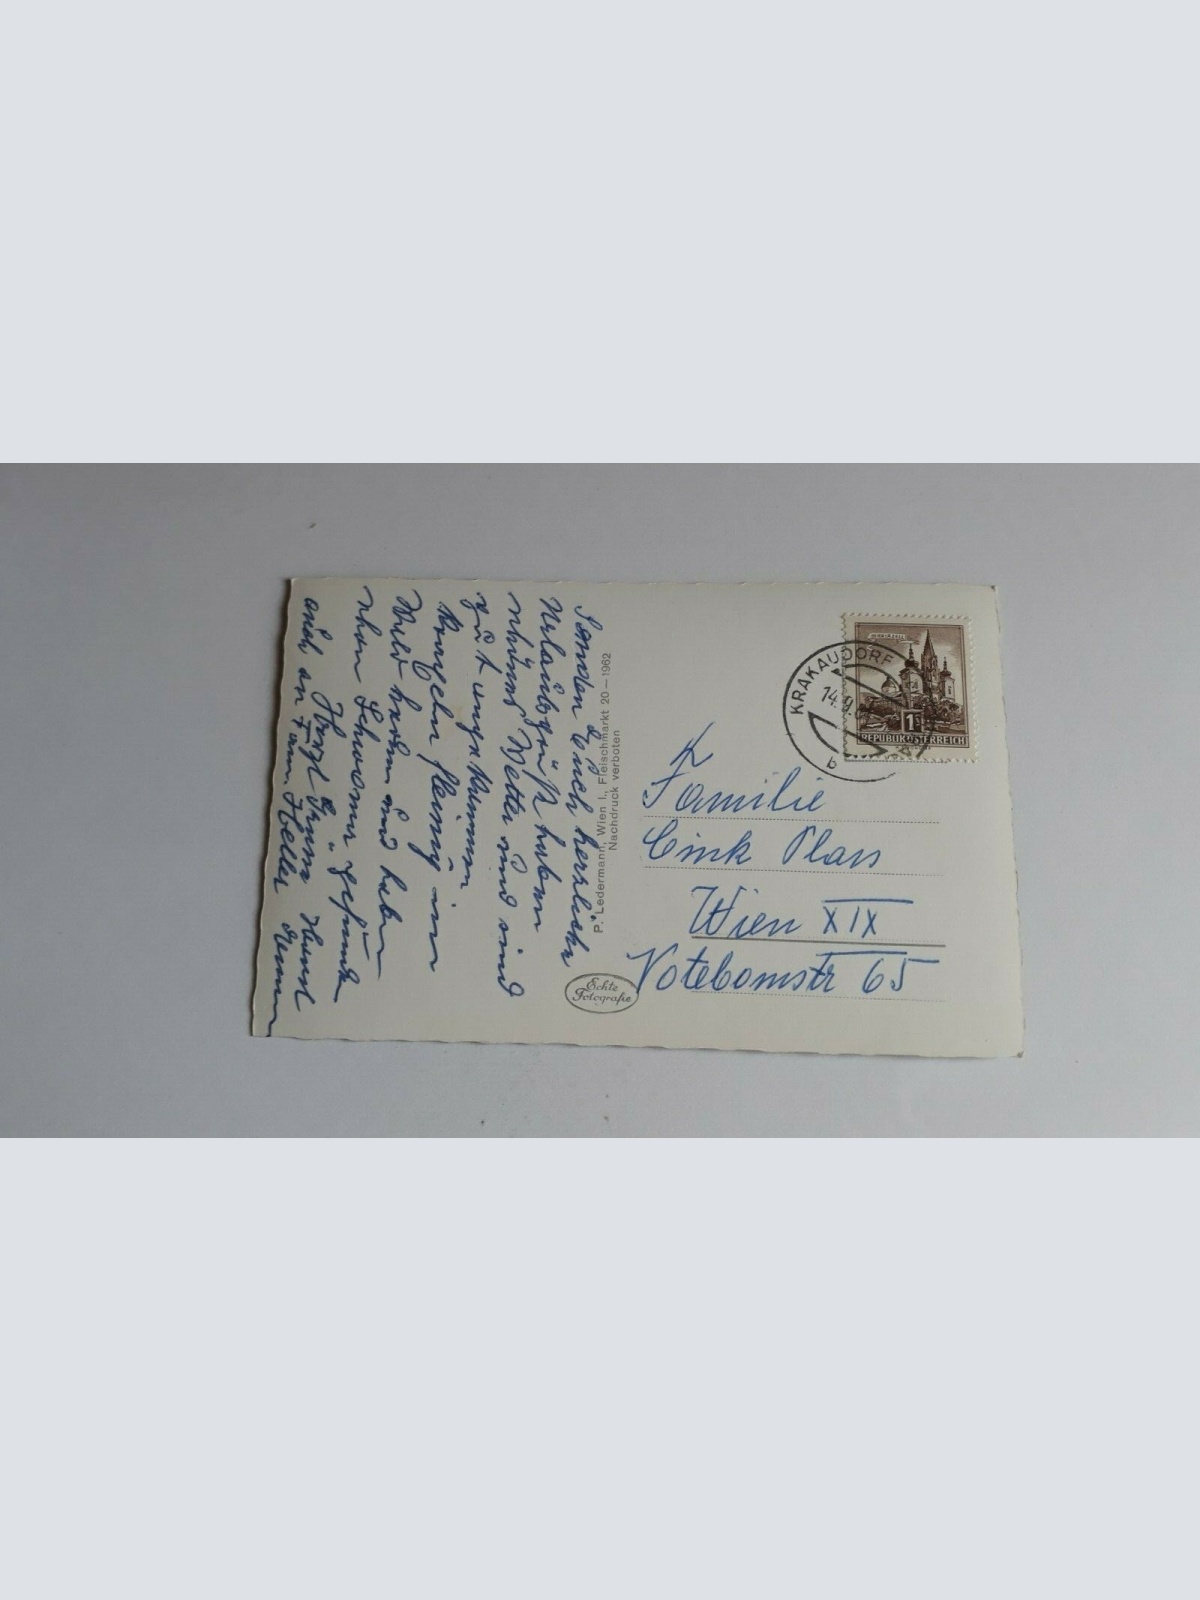 Senden Euch herzliche
Urlaubsgrüße haben
schönes Wetter und sind
gut angekommen
fleißig im
Wald herum und haben
schon Schwammerl gefunden
Herzl
auch an Fam. Heller
P. Ledermann, Wien I., Fleischmarkt 20—1962
Nachdruck verboten
Echte
Fotografie
KRAKAUDORF
14.9.
b
1S
REPUBLIK ÖSTERREICH
Familie
Cink Plass
Wien XIX
65